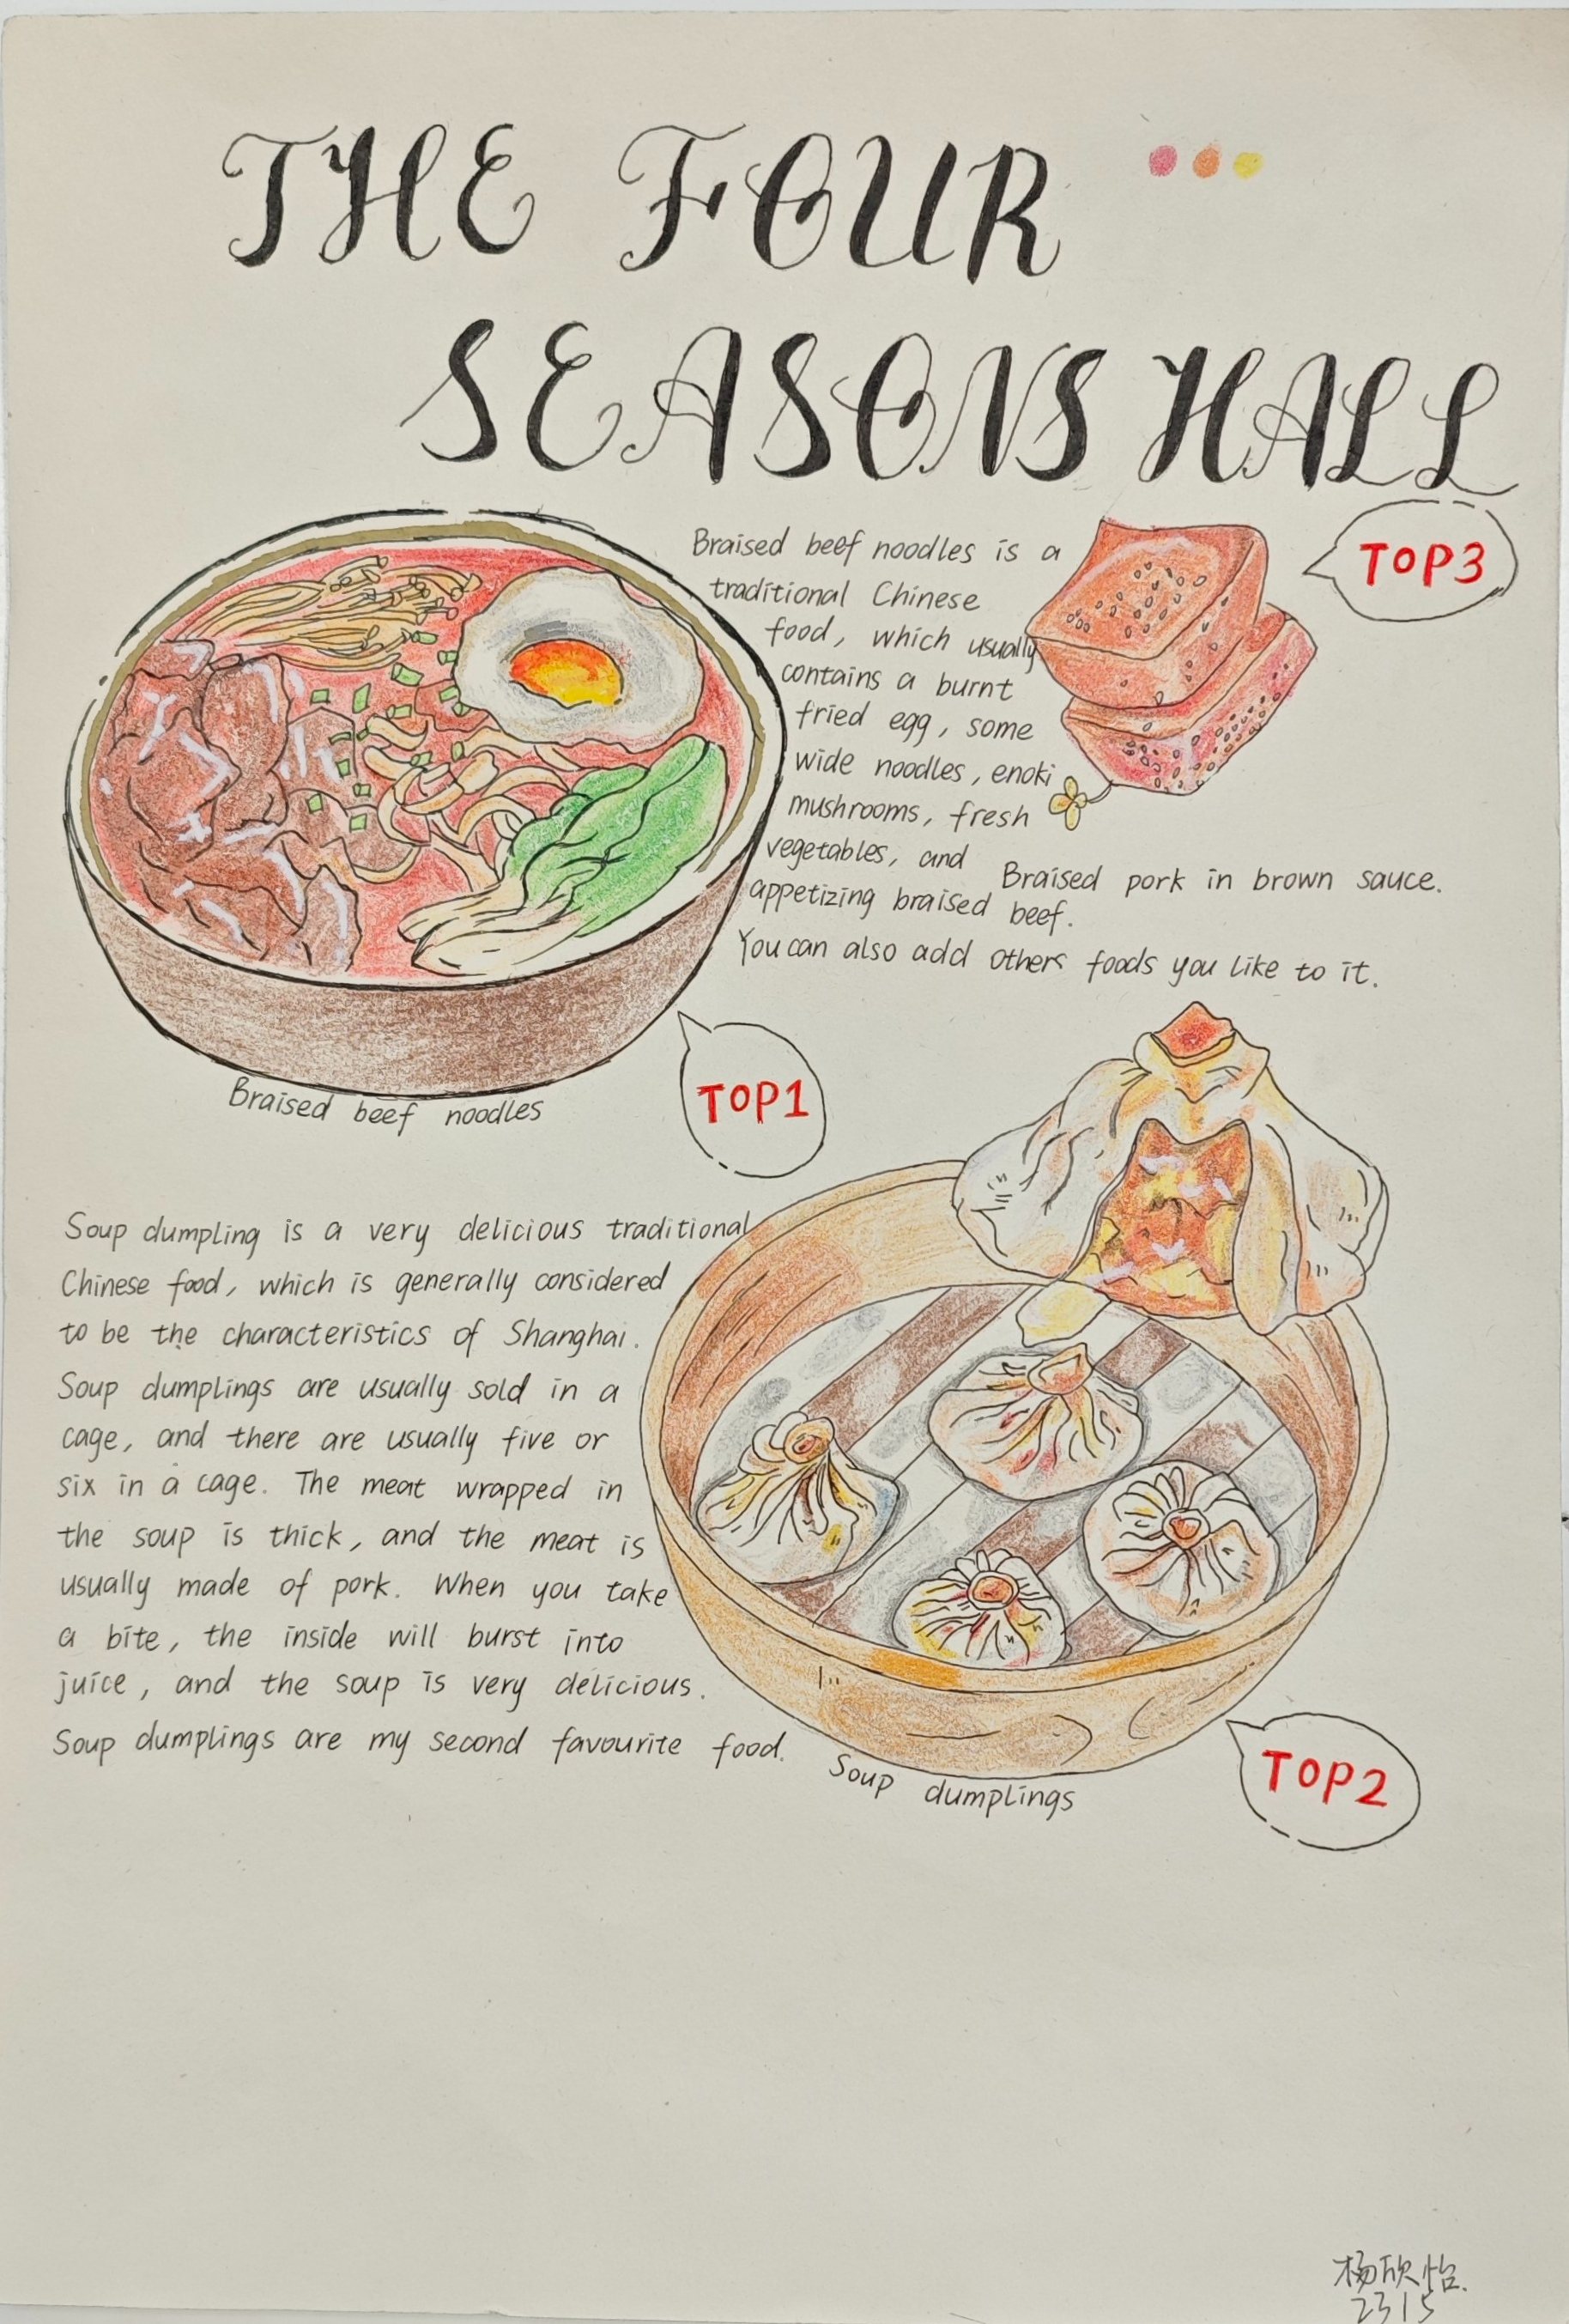 THE FOUR
SEASONS HALL
Braised beef noodles is a
traditional Chinese
food, which usually
contains a burnt
fried egg, some
wide noodles, enoki
mushrooms, fresh
vegetables, and
appetizing braised beef.
You can also add others foods you like to it.
TOP3
Braised pork in brown sauce.
Braised beef noodles
TOP1
Soup dumpling is a very delicious traditional
Chinese food, which is generally considered
to be the characteristics of Shanghai.
Soup dumplings are usually sold in a
cage, and there are usually five or
six in a cage. The meat wrapped in
the soup is thick, and the meat is
usually made of pork. When you take
a bite, the inside will burst into
juice, and the soup is very delicious.
Soup dumplings are my second favourite food.
Soup dumplings
TOP2
杨欣怡.
2315